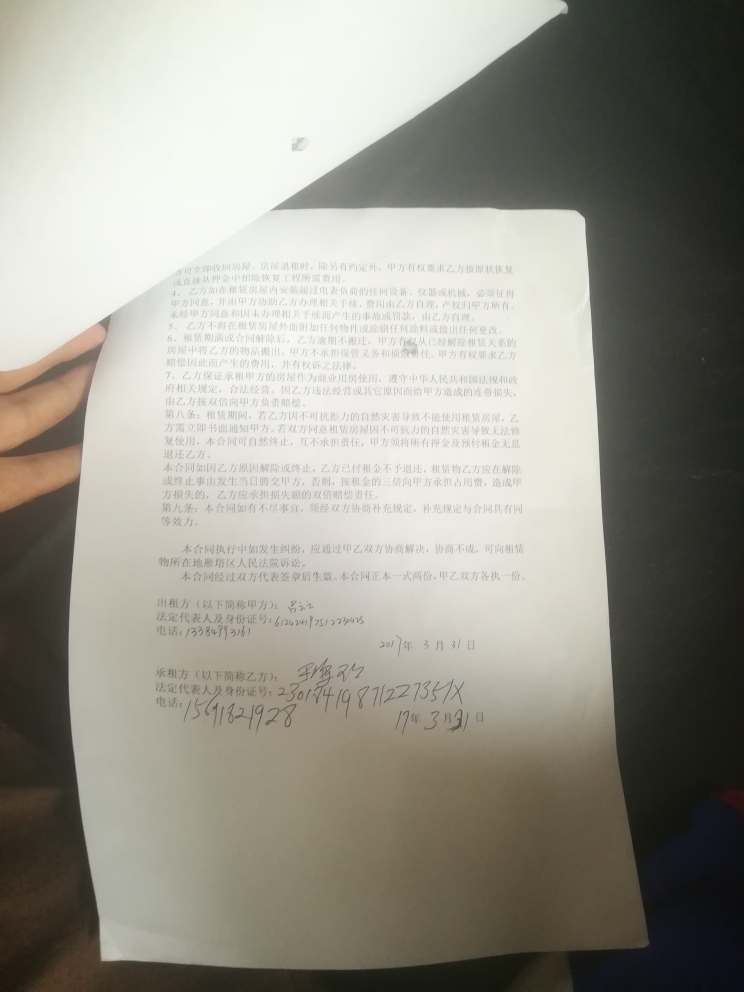 方可立即收回房屋。房屋退租时，除另有约定外，甲方有权要求乙方按原状恢复
或直接从押金中扣除恢复工程所需费用。
4、 乙方如在租赁房屋内安装超过电表负荷的任何设备、仪器或机械，必须征得
甲方同意，并由甲方协助乙方办理相关手续，费用由乙方自理，产权归甲方所有。
未经甲方同意和因未办理相关手续而产生的事故或罚款，由乙方自理。
5、 乙方不得在租赁房屋外面附加任何物件或涂刷任何涂料或做出任何更改。
6、租赁期满或合同解除后，乙方逾期不搬迁，甲方有权从已经解除租赁关系的
房屋中将乙方的物品搬出，甲方不承担保管义务和损失责任。甲方有权要求乙方
赔偿因此而产生的费用，并有权诉之法律。
7、乙方保证承租甲方的房屋作为商业用房使用，遵守中华人民共和国法规和政
府相关规定，合法经营。因乙方违法经营或其它原因而给甲方造成的连带损失，
由乙方按双倍向甲方负责赔偿。
第八条：租赁期间，若乙方因不可抗拒力的自然灾害导致不能使用租赁房屋，乙
方需立即书面通知甲方。若双方同意租赁房屋因不可抗力的自然灾害导致无法修
复使用，本合同可自然终止，互不承担责任，甲方须将所有押金及预付租金无息
退还乙方。
本合同如因乙方原因解除或终止，乙方已付租金不予退还，租赁物乙方应在解除
或终止事由发生当日腾交甲方，否则，按租金的三倍向甲方承担占用费，造成甲
方损失的，乙方应承担损失额的双倍赔偿责任。
第九条：本合同如有不尽事宜，须经双方协商补充规定，补充规定与合同具有同
等效力。
本合同执行中如发生纠纷，应通过甲乙双方协商解决，协商不成，可向租赁
物所在地雁塔区人民法院诉讼。
本合同经过双方代表签章后生效。本合同正本一式两份，甲乙双方各执一份。
出租方（以下简称甲方）：
法定代表人及身份证号：
电话：13384993161
2017年 3 月 31 日
承租方（以下简称乙方）：
法定代表人及身份证号：23018419871227351X
电话：15691821928
17年 3 月 31 日